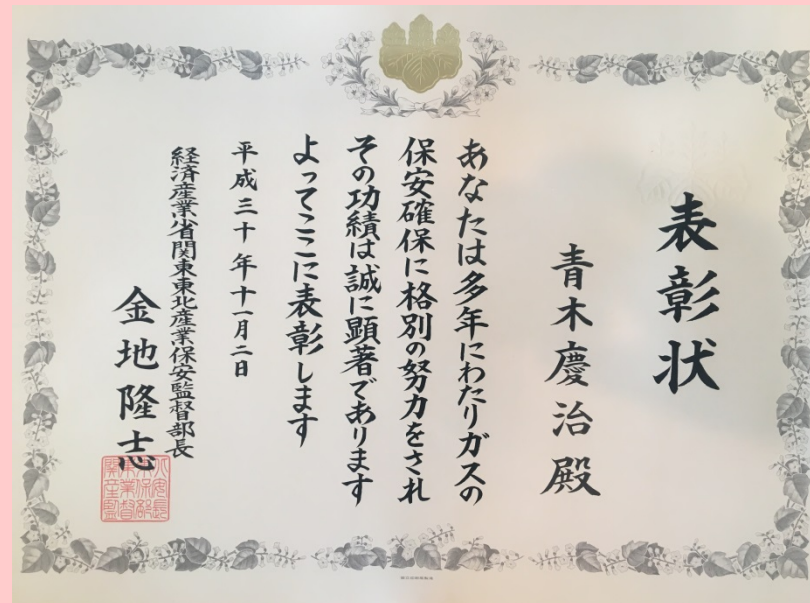 表彰状
青木慶治殿
あなたは多年にわたりガスの
保安確保に格別の努力をされ
その功績は誠に顕著であります
よってここに表彰します
平成三十年十一月二日
経済産業省関東東北産業保安監督部長
金地隆志